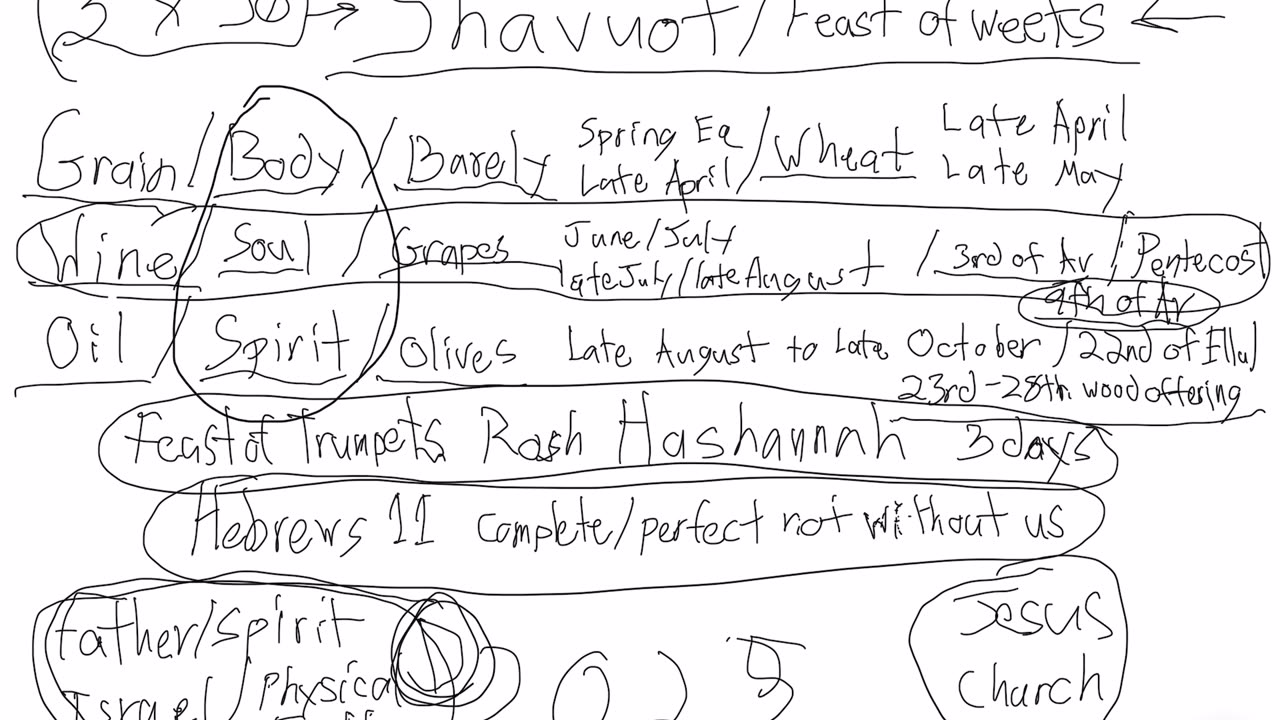 Shavuot/Feast of weeks
Grain/Body/Barely Spring Eq Late April/Wheat Late April Late May
Wine Soul/Grapes June/July late July/late August/3rd of Av/Pentecost
9th of Av
Oil/Spirit/Olives Late August to Late October/22nd of Elul
23rd-28th wood offering
Feast of Trumpets Rosh Hashannah 3 days
Hebrews 11 complete/perfect not without us
Father/spirit
Jesus
Israel/Physical
Church